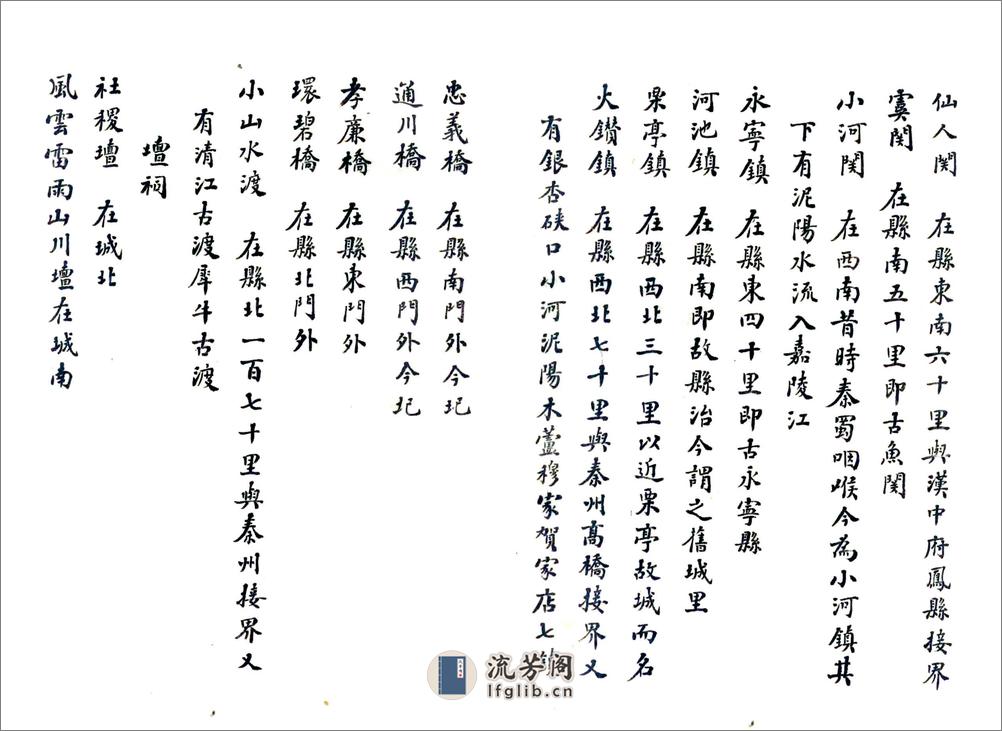 仙人関　在縣東南六十里與漢中府鳳縣接界
虞関　在縣南五十里即古魚関
小河関　在西南昔時秦蜀咽喉今為小河鎮其
下有泥陽水流入嘉陵江
永寧鎮　在縣東四十里即古永寧縣
河池鎮　在縣南即故縣治今謂之舊城里
栗亭鎮　在縣西北三十里以近栗亭故城而名
火鑽鎮　在縣西北七十里與秦州高橋接界又
有銀杏硤口小河泥陽木蘆穆家賀家店七鎮
忠義橋　在縣南門外今圮
通川橋　在縣西門外今圮
孝廉橋　在縣東門外
環碧橋　在縣北門外
小山水渡　在縣北一百七十里與秦州接界又
有清江古渡犀牛古渡
壇祠
社稷壇　在城北
風雲雷雨山川壇在城南
流芳阁
lfglib.cn